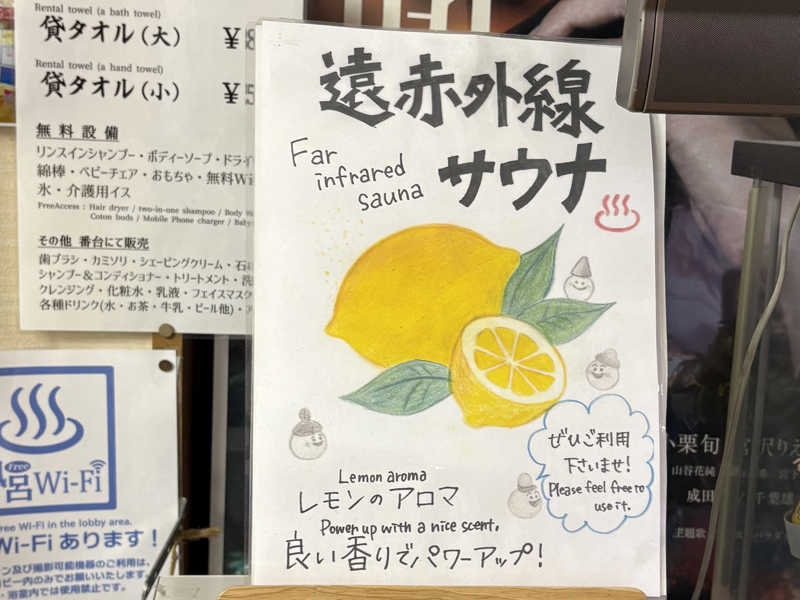 Rental towel (a bath towel)
貸タオル(大) ¥
Rental towel (a hand towel)
貸タオル(小) ¥
無料設備
リンスインシャンプー・ボディーソープ・ドライ
綿棒・ベビーチェア・おもちゃ・無料Wi
氷・介護用イス
FreeAccess : Hair dryer / two-in-one shampoo / Body
Coton buds / Mobile Phone charger / Baby
その他 番台にて販売
歯ブラシ・カミソリ・シェービングクリーム・石
シャンプー&コンディショナー・トリートメント・洗
クレンジング・化粧水・乳液・フェイスマスク
各種ドリンク(水・お茶・牛乳・ビール他)・
Free
呂Wi-Fi
ree WI-FI in the lobby area.
Wi-Fi あります!
ン及び撮影可能機器のご利用は、
ビー内のみでお願いいたします
・浴室内では使用禁止です。
遠赤外線
サウナ
Far
infrared
sauna
Lemon aroma
レモンのアロマ
Power up with a nice scent.
良い香りでパワーアップ!
ぜひご利用
下さいませ!
Please feel free to
use it.
小栗旬
山谷花純
成田
千葉雄
主題歌